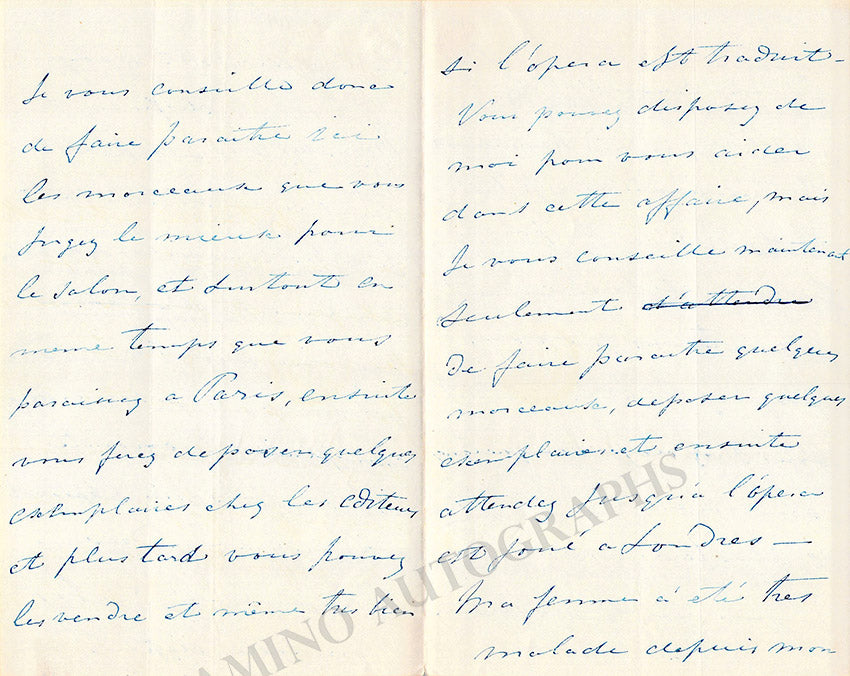 Je vous conseille donc
de faire paraitre ici
les morceaux que vous
jugez le mieux pour
le salon, et surtout en
meme temps que vous
paraissez a Paris, ensuite
vous ferez deposer quelques
exemplaires chez les editeurs
et plus tard vous pouvez
les vendre et même tres bien
si l'opera est traduit -
Vous pouvez disposez de
moi pour vous aider
dans cette affaire, mais
Je vous conseille maintenant
seulement d'attendre
de faire paraitre quelques
morceaux, deposer quelques
exemplaires et ensuite
attendez jusqu'a l'opera
est joué a Londres —
Ma femme a été tres
malade depuis mon
TAMINO AUTOGRAPHS